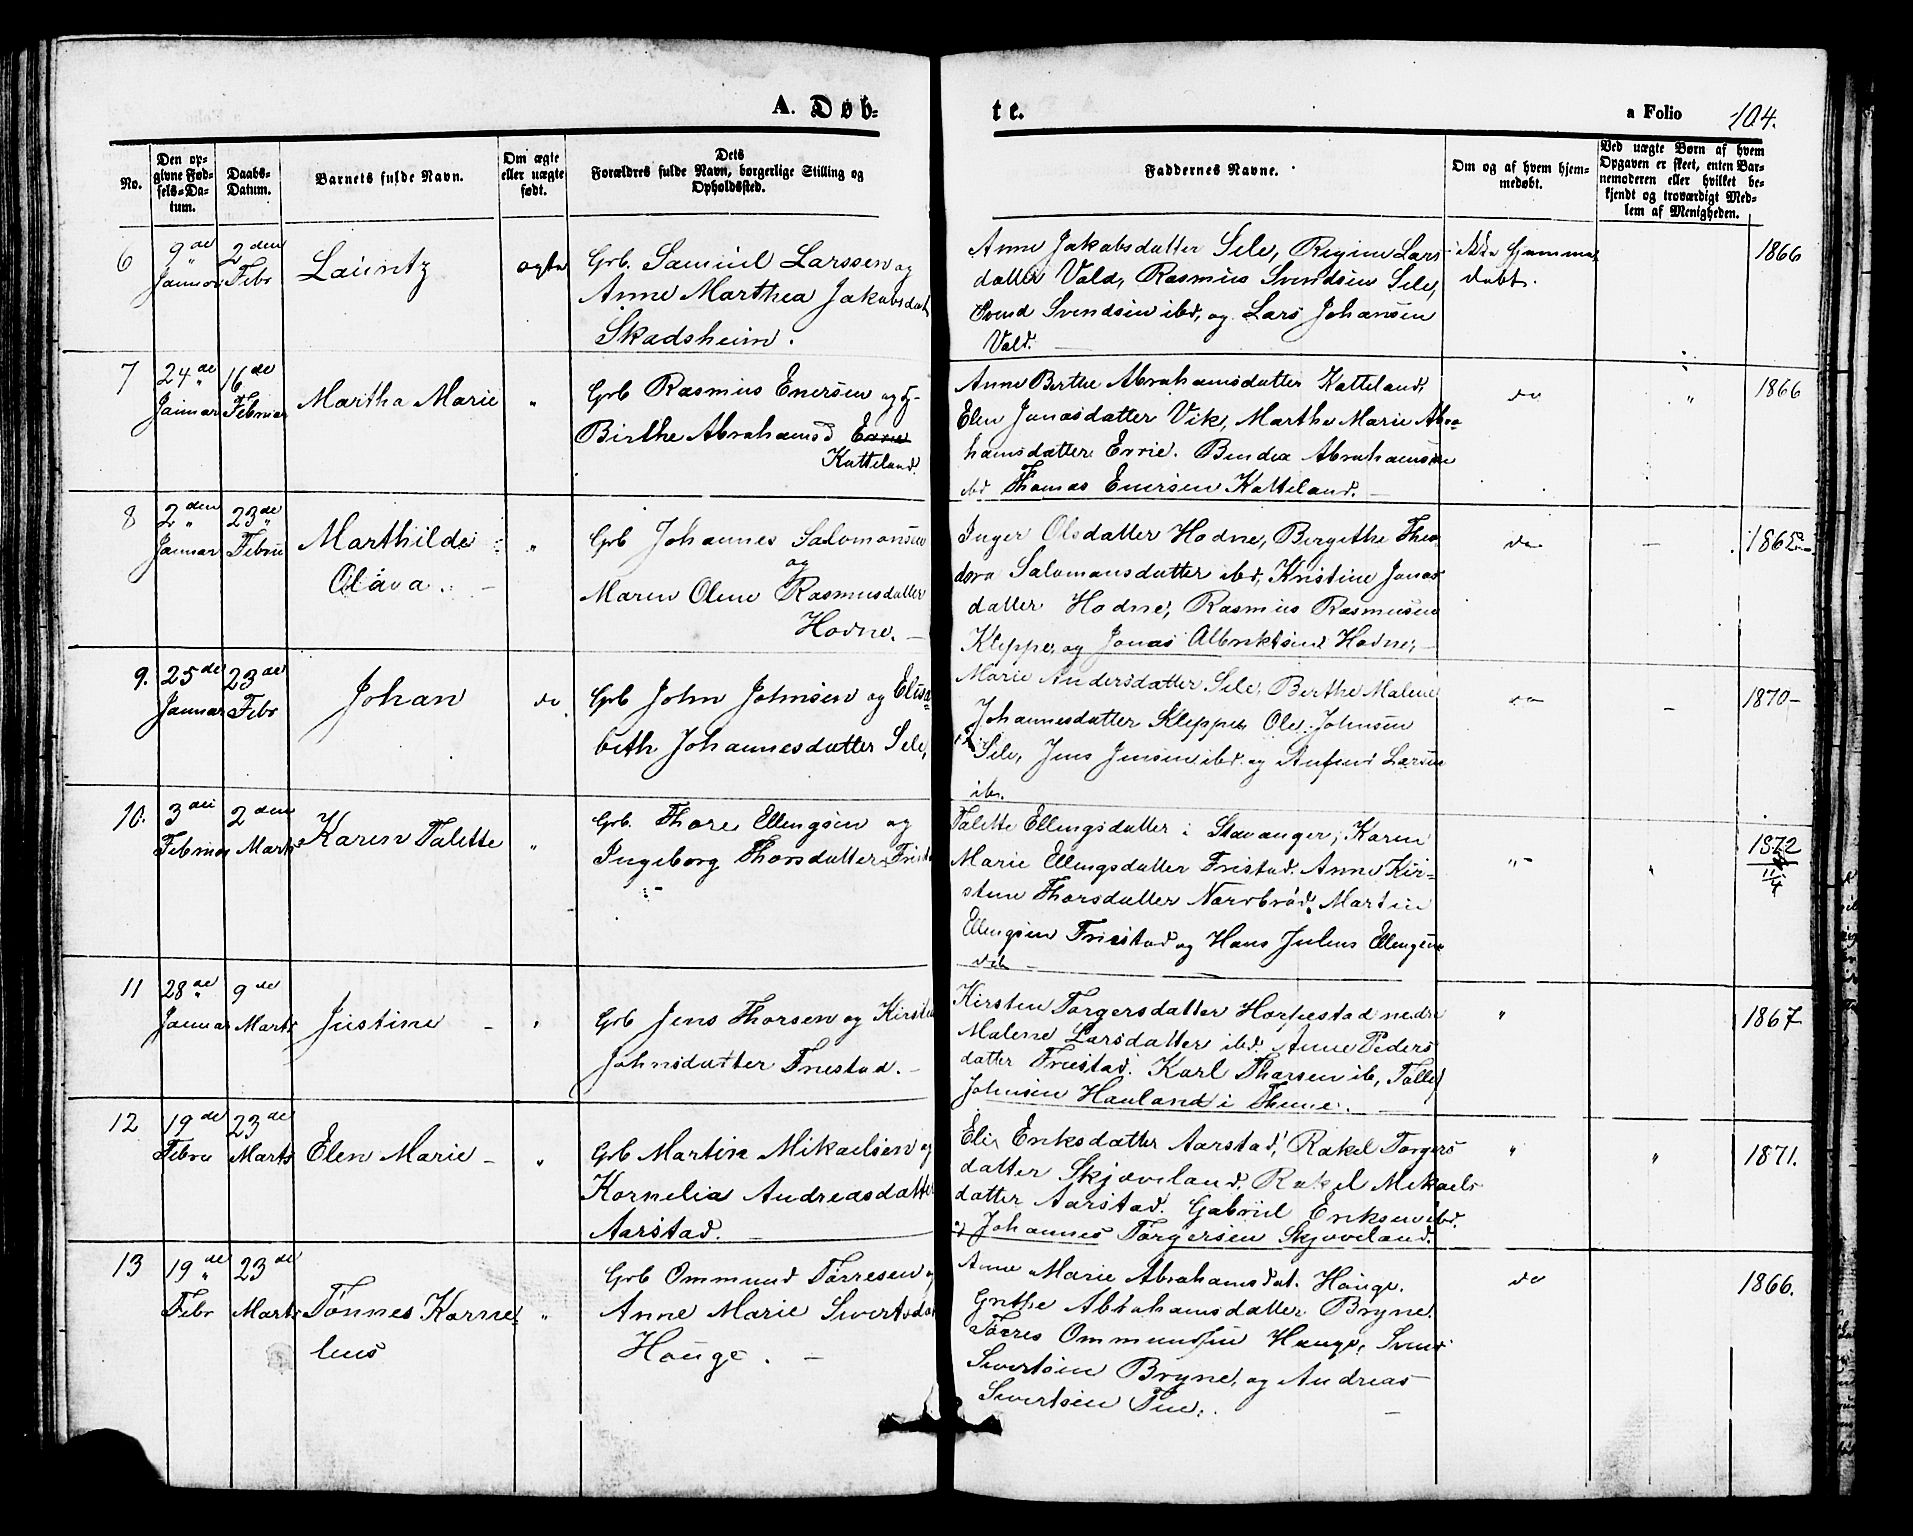 A. Døb-
te.
a Folio 104.
No.
Den op-
givne Fød-
sels-Da-
tum.
Daabs-
Datum.
Barnets fulde Navn.
Om ægte
eller uægte
født.
Dets
Forældres fulde Navn, borgerlige Stilling og
Opholdssted.
Faddernes Navne.
Om og af hvem hjem-
medøbt.
Ved uægte Børn af hvem
Opgaven er skeet, enten Bar-
nemoderen eller hvilket be-
kjendt og troværdigt Med-
lem af Menigheden.
6
9de
Januar
2den
Febr
Lauritz
ægte
Grb. Samuel Larssen og
Anne Marthea Jakobsdat
Skadsheim.
Anne Jakobsdatter Sele, Regine Lars
datter Vold, Rasmus Svendsen Sele,
Svend Svendsen ibd, og Lars Johansen
Vold.
ikke hjemme
døbt.
1866
7
24de
Januar
16de
Februar
Martha Marie
"
Grb Rasmus Enersen og
Birthe Abrahamsd
Katteland.
Anne Berthe Abrahamsdatter Katteland,
Elen Jonasdatter Vik, Martha Marie Abra-
hamsdatter Evrie. Abrahamsen
ibd Thomas Enersen Katteland.
do
"
1866
8
2den
Januar
23de
Febru
Marthilde
Olava.
"
Grb Johannes Salomonsen
og
Maren Olene Rasmusdatter
Hodne.
Inger Olsdatter Hodne, Birgithe Theo
dora Salomonsdatter ibd, Kristine Jonas
datter Hodne, Rasmus Rasmusen
Kleppe, og Jonas Albriktsen Hodne,
do
1865
9.
25de
Januar
23de
Febr
Johan
do
Grb John Johnsen og Elisa-
beth Johannesdatter Sele,
Marie Andersdatter Sele, Berthe Malene
Johannesdatter Kleppe, Ole Johnsen
Sele, Jens Jensen ibd. og Larsen
ib.
do
1870-
10.
3die
Februar
2den
Marts
Karen Talette
"
Grb. Thore Ellingsen og
Ingeborg Thorsdatter Frista
Talette Ellingsdatter i Stavanger, Karen
Marie Ellingsdatter Fristad. Anne Kir-
stine Thorsdatter Nærbrød, Martin
Ellingsen Friestad og Hans Julius Ellingsen
"
1872
11/4
11
28de
Januar
9de
Marts
Justine
"
Grb Jens Thorsen og Kirsten
Johnsdatter Friestad.
Kirsten Torgersdatter Horpestad nedre
Malene Larsdatter ibd. Anne Peders
datter Friestad. Karl Thorsen ib, Tollef
Johnsen Hauland i Thime.
"
1867
12
19de
Febru
23de
Marts
Elen Marie
"
Grb Martin Mikaelsen og
Kornelia Andreasdatter
Aarstad.
Eli Eriksdatter Aarstad, Rakel Torgers
datter Skjæveland. Rakel Mikaels
datter Aarstad. Gabriel Eriksen ibd.
og Johannes Torgersen Skjæveland.
"
"
1871.
13
19de
Febr
23de
Marts
Tønnes Korne-
lius
"
Grb Ommund Tørresen og
Anne Marie Sivertsdat
Hauge.
Anne Marie Abrahamsdat. Hauge.
Grethe Abrahamsdatter Bryne.
Tørres Ommundsen Hauge, Svend
Sivertsen Bryne, og Andreas
Sivertsen Tu.
do
1866.